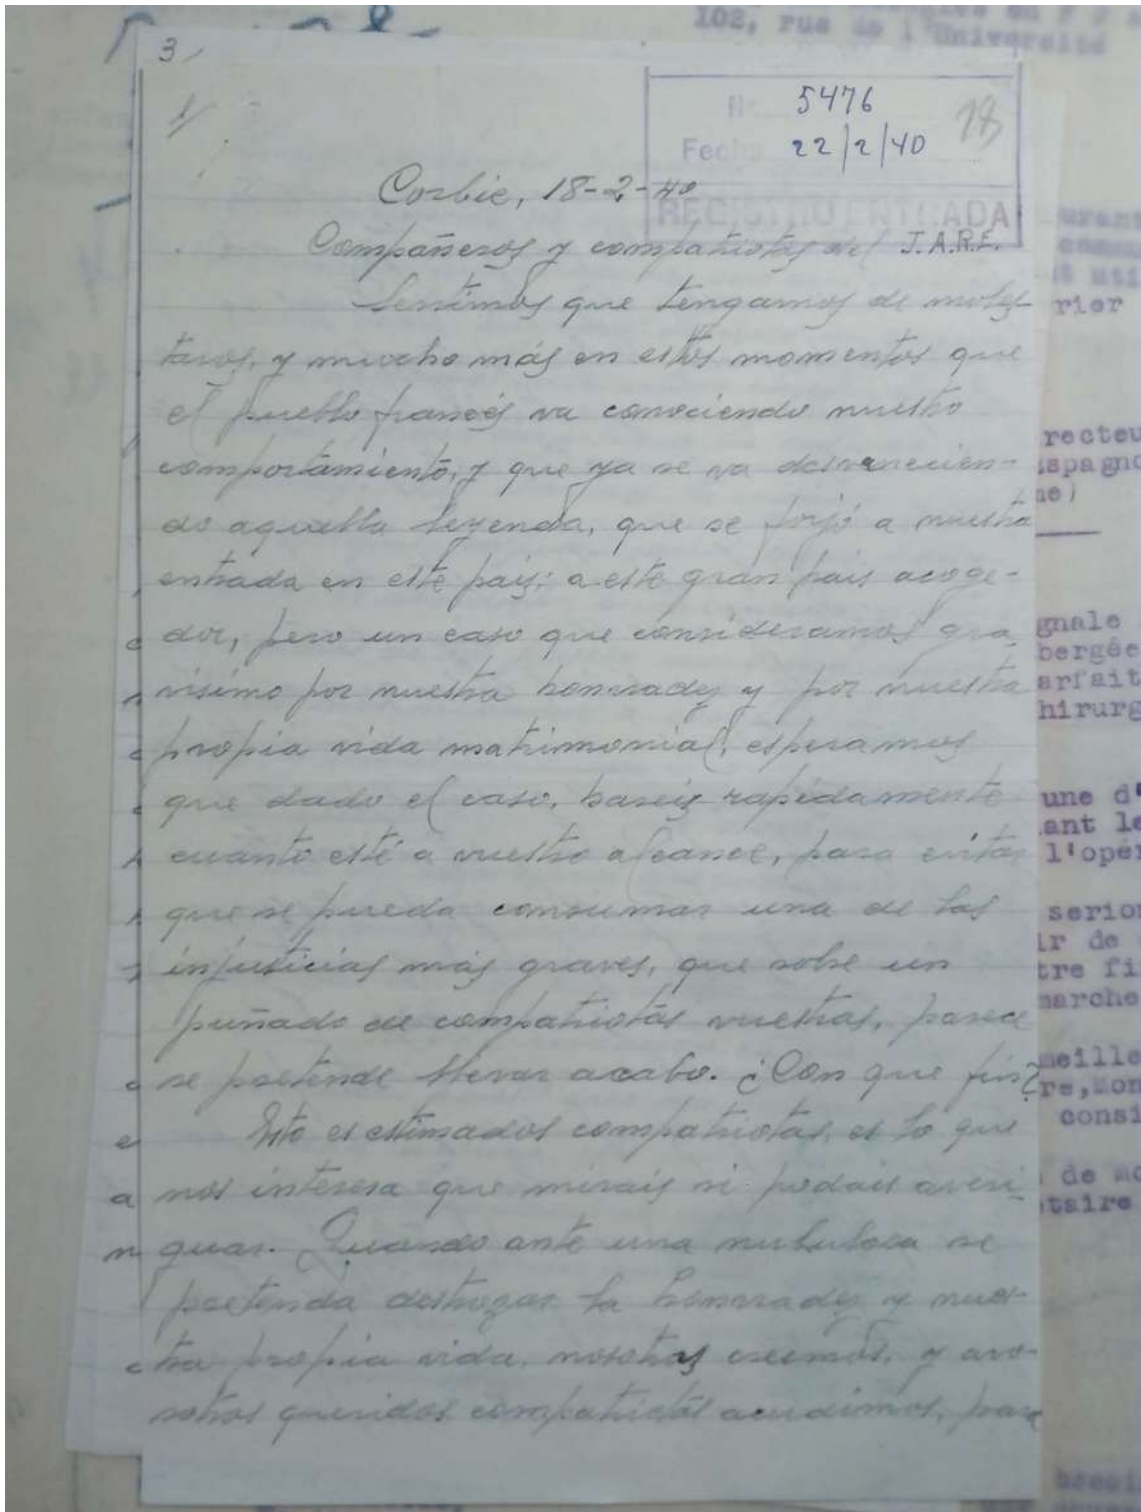 102, rue de l'Université
3
1/
Nº 5476
18
Fecha 22/2/40
REGISTRO ENTRADA
Corbie, 18-2-40
Compañeros y compatriotas del J.A.R.E.
Sentimos que tengamos de moles-
taros, y mucho más en estos momentos que
el pueblo francés va conociendo nuestro
comportamiento, y que ya se va desvanecien-
do aquella leyenda, que se forjó a nuestra
entrada en este país; a este gran país acoge-
dor, pero un caso que consideramos gra-
visimo por nuestra honrradez y por nuestra
propia vida matrimonial, esperamos
que dado el caso, hareis rapidamente
cuanto esté a vuestro alcance, para evitar
que se pueda consumar una de las
injusticias más graves, que sobre un
puñado de compatriotas vuestras, parece
se pretende llevar acabo. ¿Con que fin?
Esto es estimados compatriotas, es lo que
nos interesa que mirais si podais averi-
guar. Quando ante una nubulosa se
pretenda destrozar la honrradez y nues-
tra propia vida, nosotras creemos, y avo-
sotros queridos compatriotas acudimos, para
urant
rier
recteu
ispagno
ne)
gnale
bergée
arfait
hirurg
une d'
ant le
l'opér
serion
ir de
tre fi
marche
meille
re, Mon
consi
de
taire